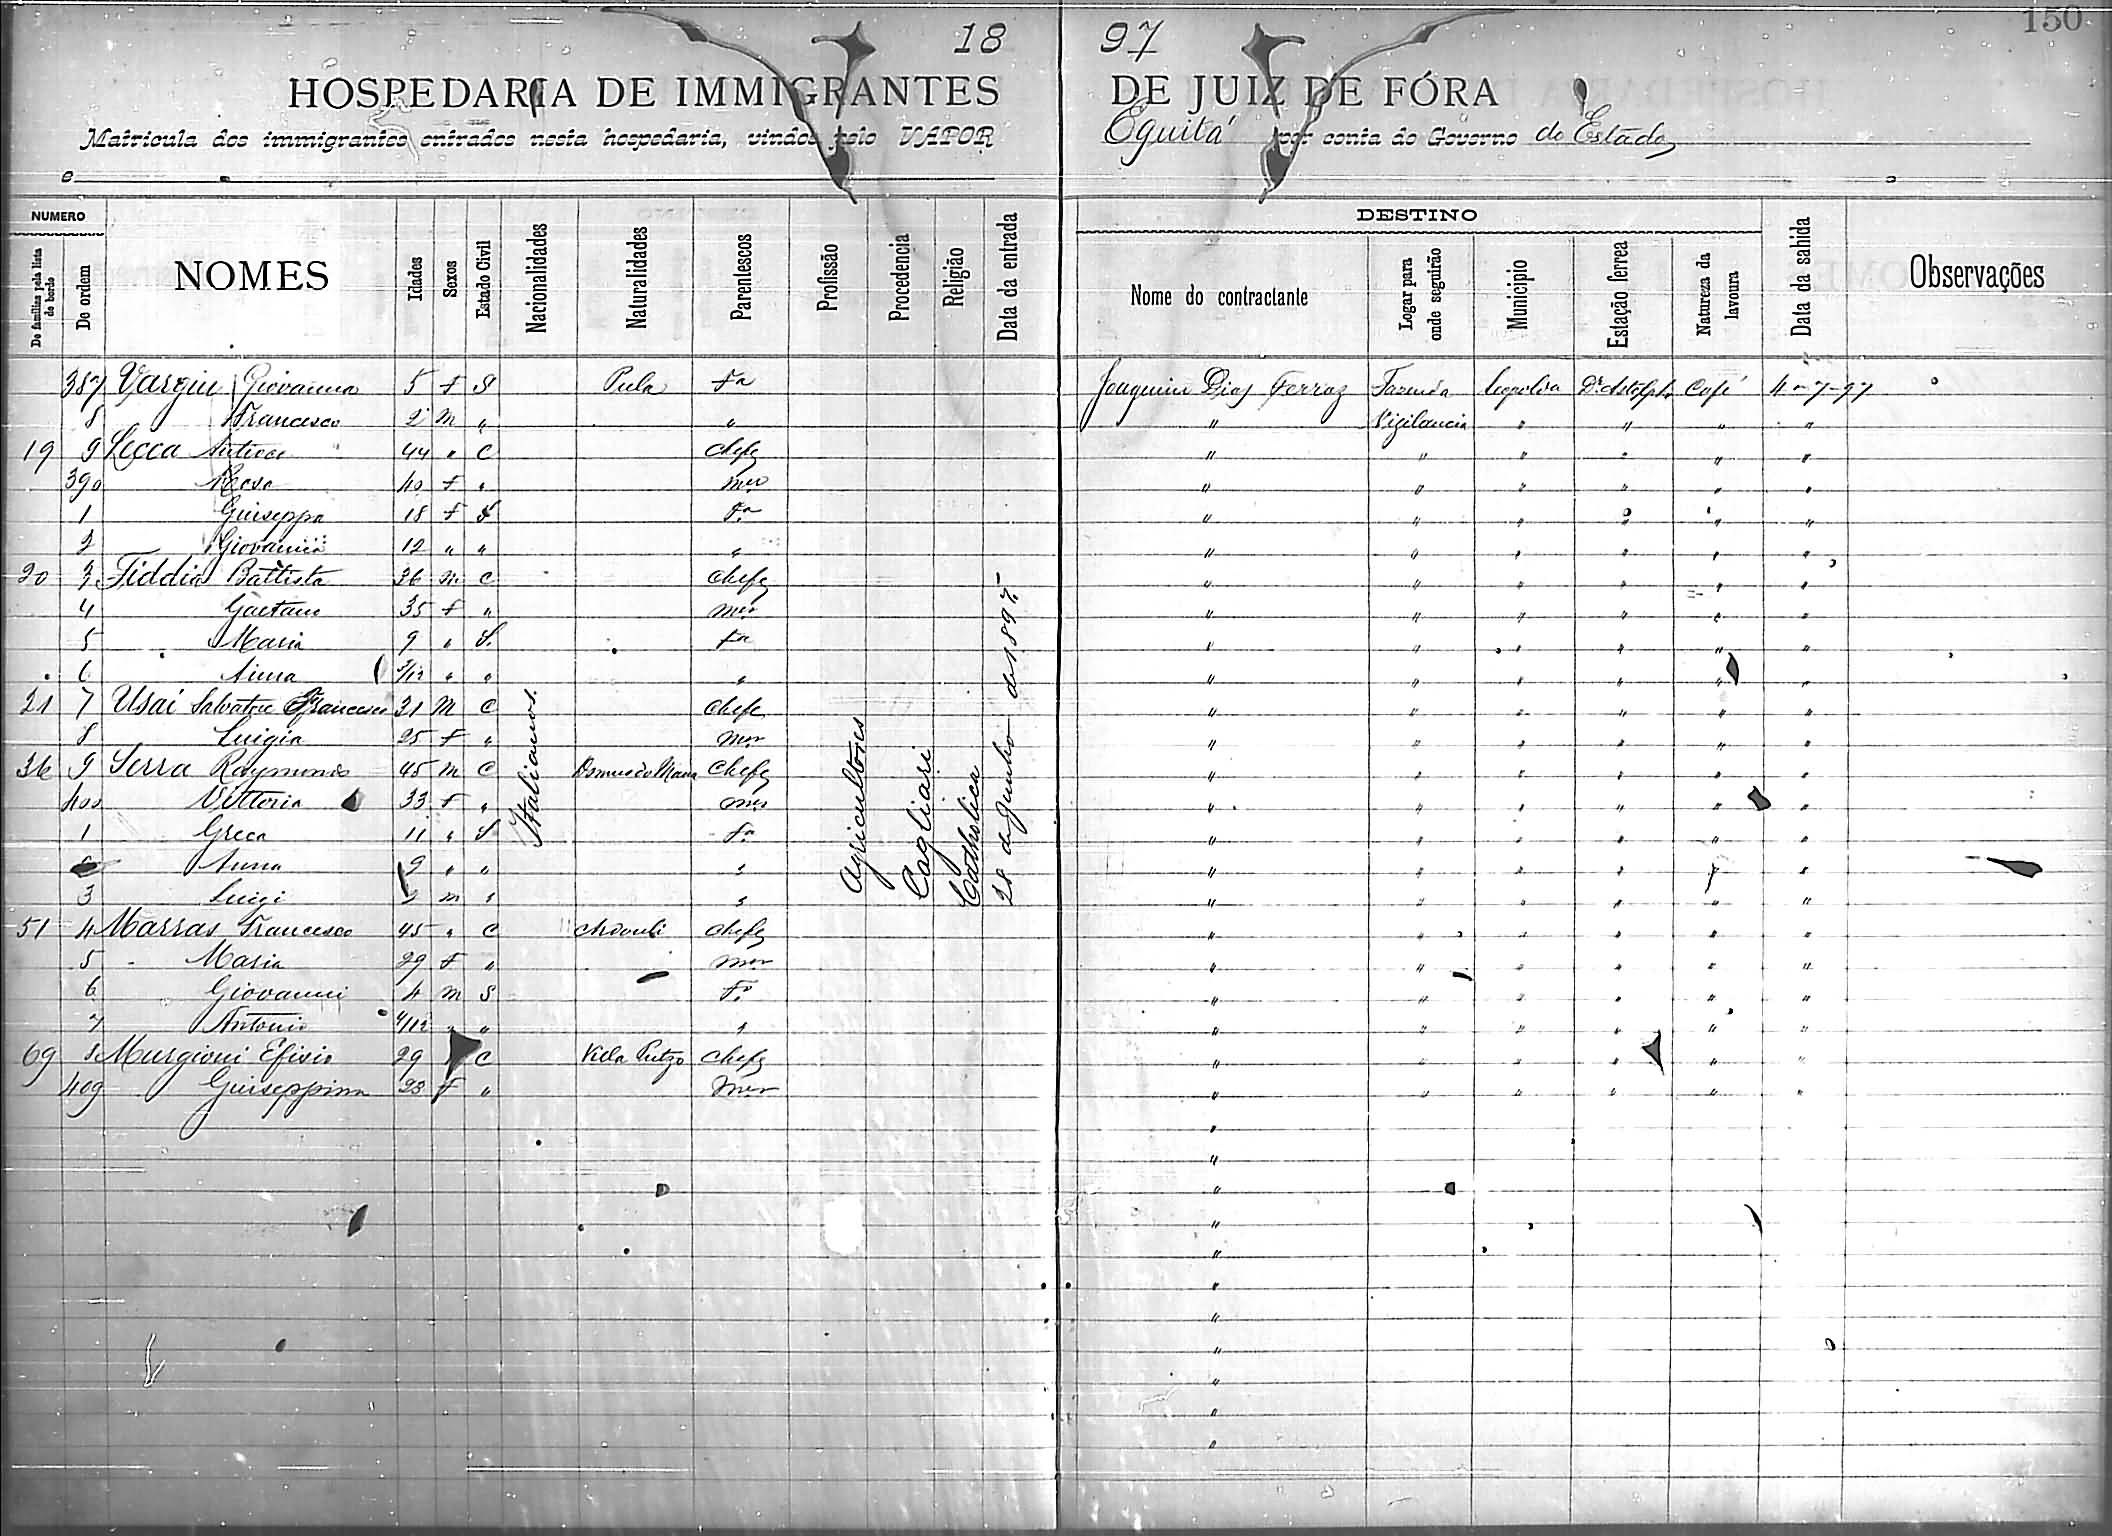 150
18 97
HOSPEDARIA DE IMMIGRANTES DE JUIZ DE FÓRA
Matricula dos immigrantes entrados nesta hospedaria, vindos pelo VAPOR Equitá por conta do Governo do Estado
e
NUMERO
De familias pela lista de bordo
De ordem
NOMES
Idades
Sexos
Estado Civil
Nacionalidades
Naturalidades
Parentescos
Profissão
Procedencia
Religião
Data da entrada
DESTINO
Nome do contractante
Logar para onde seguirão
Municipio
Estação ferrea
Natureza da lavoura
Data da sahida
Observações
387 Vargiu Giovanna 5 F S Pula Fa Joaquim Dias Ferraz Fazenda Leopoldina Dr. Astolpho Café 4-7-97
8 Francesco 2 M " " " Vigilancia " " " "
19 9 Lecca Antioco 44 " C Chefe " " " " " "
390 Rosa 40 F " mer " " " " " "
1 Giuseppa 18 F S Fa " " " " " "
2 Giovanna 12 " " " " " " " " "
20 3 Fiddia Battista 36 m C Chefe " " " " " "
4 Gaetana 35 F " mer " " " " " "
5 Maria 9 " S. Fa " " " " " "
6 Anna /12 " " " " " " " " "
21 7 Usai Salvatore Francesco 31 M C Chefe " " " " " "
8 Luigia 25 F " mer " " " " " "
36 9 Serra Raymondo 45 M C Chefe " " " " " "
400 Vittoria 33 F " mer " " " " " "
1 Greca 11 " S Fa " " " " " "
Anna 9 " " " " " " " " "
3 Luigi 2 m " " " " " " " "
51 4 Marras Francesco 45 " C Chefe " " " " " "
5 Maria 29 F " mer " " " " " "
6 Giovanni 4 M S Fo " " " " " "
7 Antonio /12 " " " " " " " " "
69 8 Murgioni Efisio 29 C Villa Putzo Chefe " " " " " "
409 Giuseppina 23 F " Mer " " " " " "
Italianos.
Agricultores
Cagliari
Catholica
28 de Junho de 1897-
"
"
"
"
"
"
"
"
"
"
"